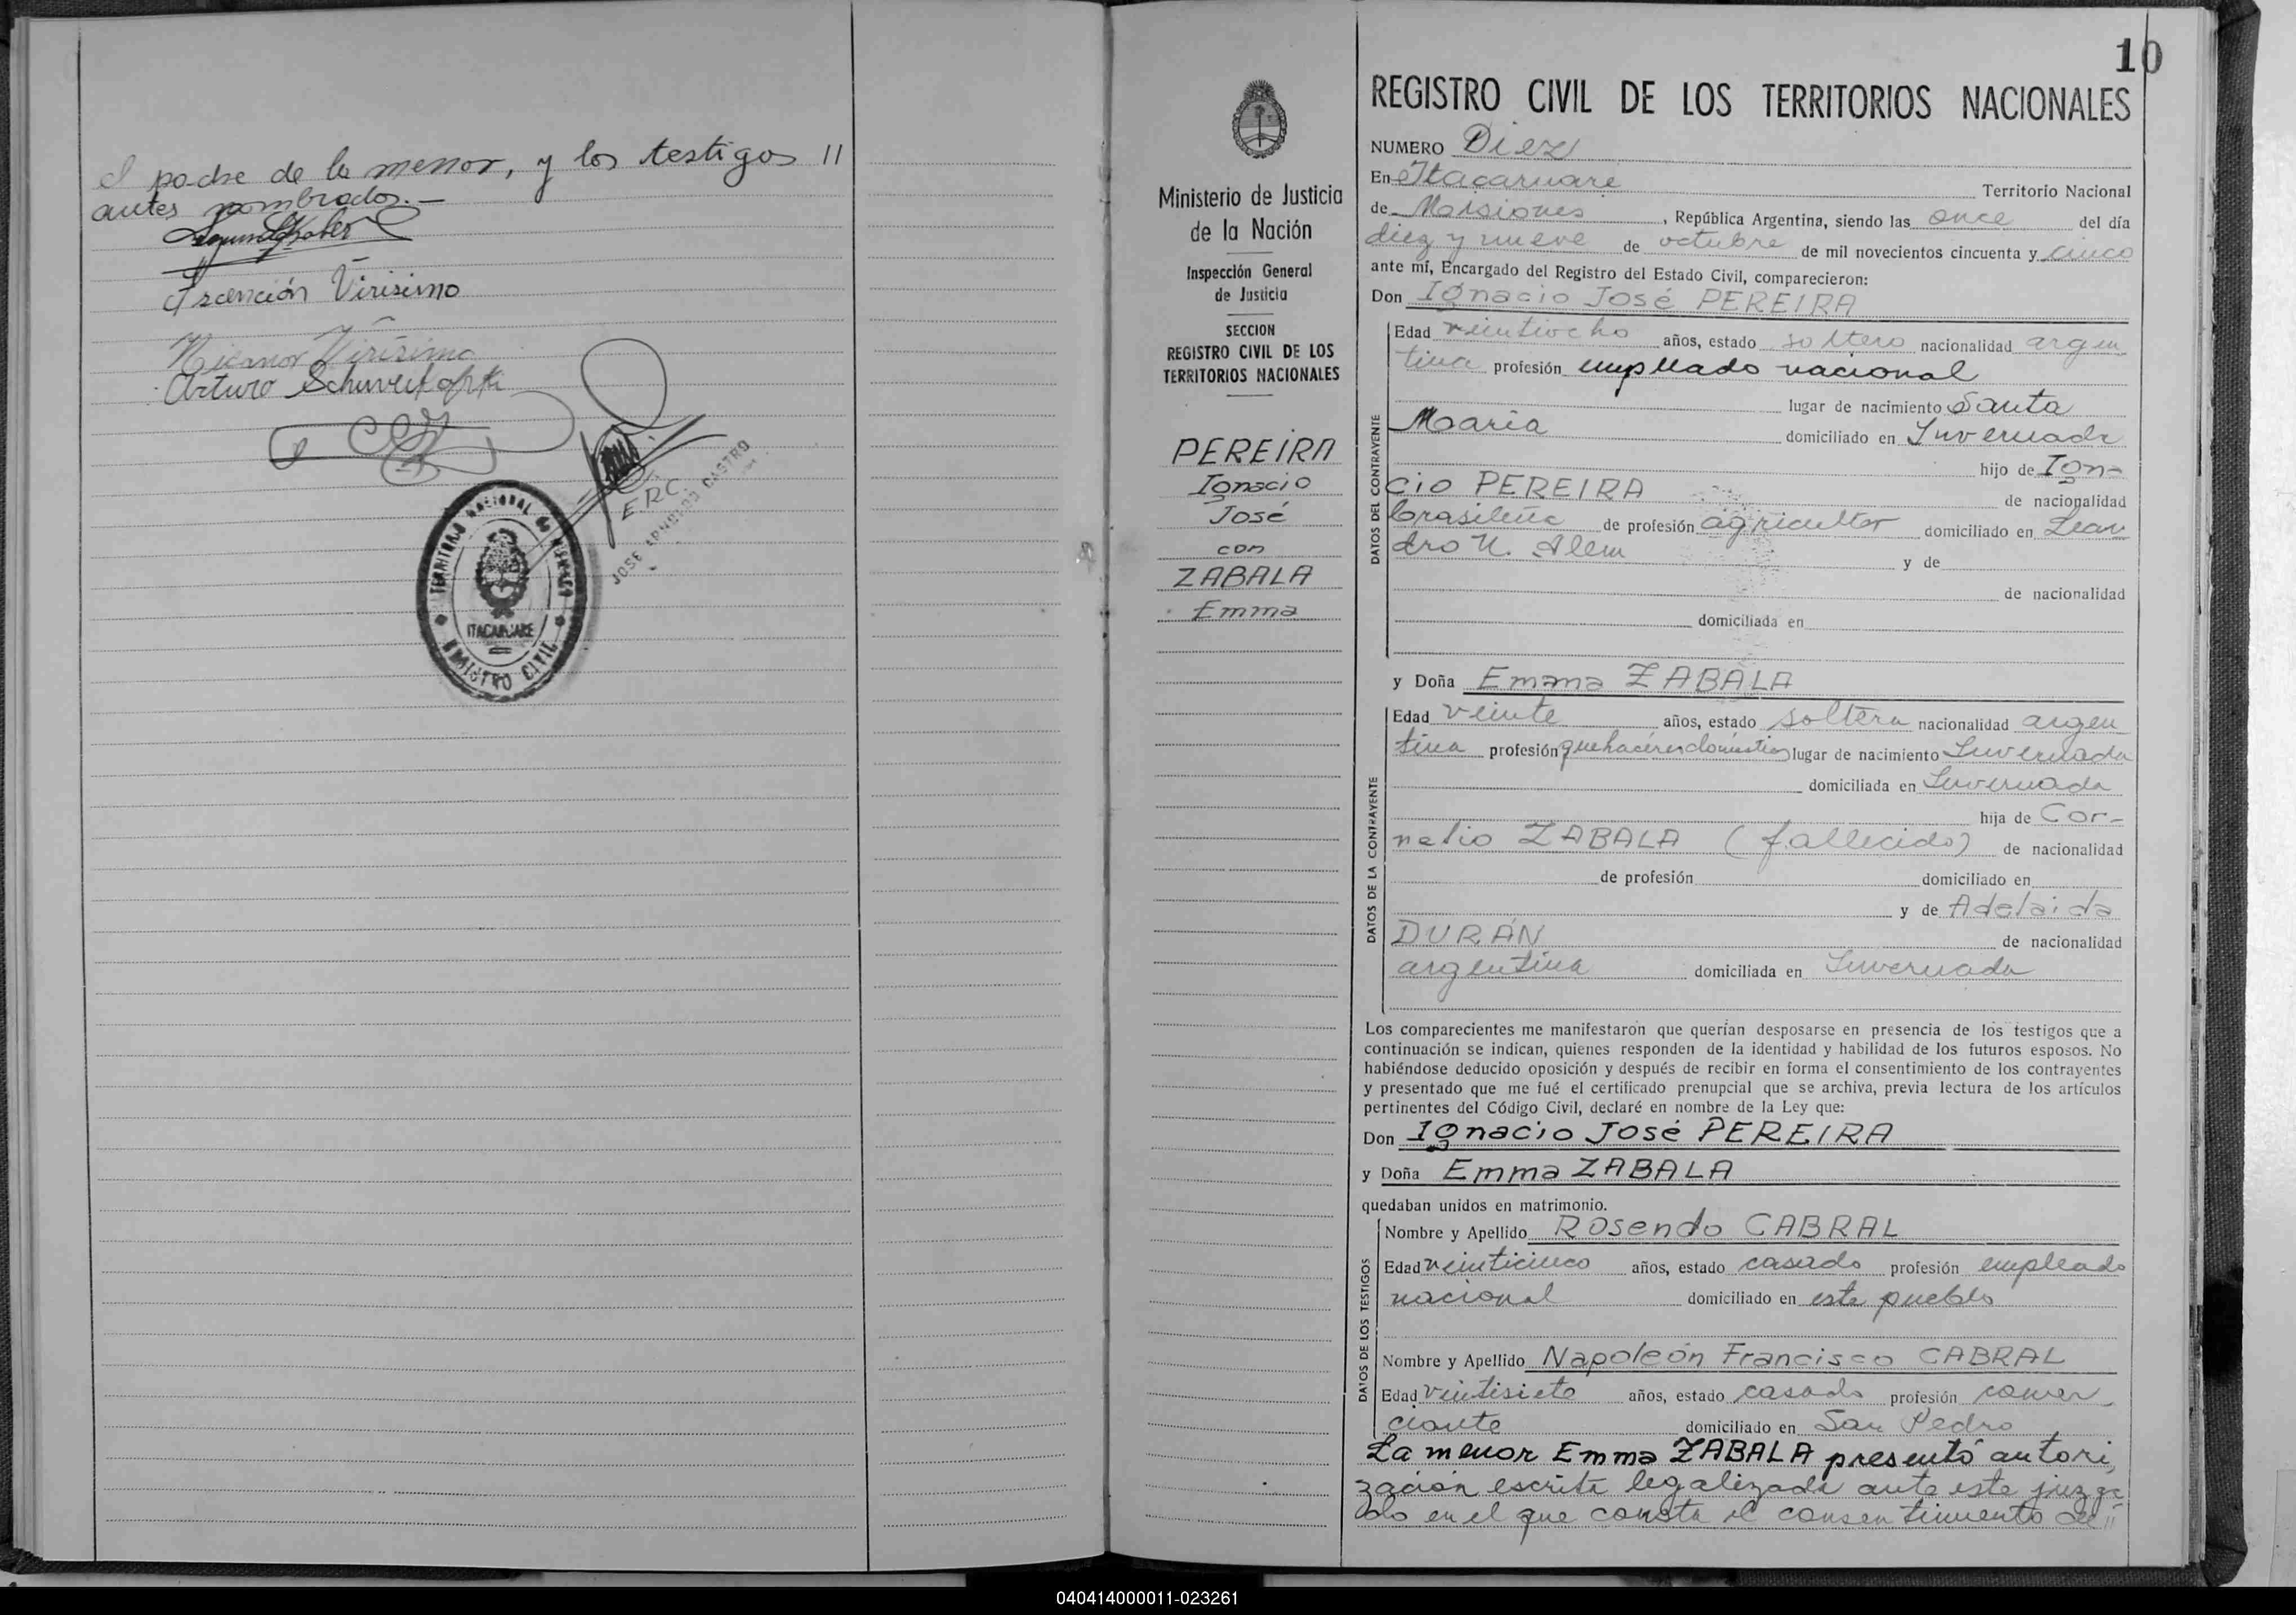 el padre de la menor, y los testigos //
antes nombrados.—
Ascención Virisimo
Nicanor Virísimo
Arturo
E.R.C.
JOSE EDMUNDO CASTRO
TERRITORIO NACIONAL DE MISIONES
ITACARUARE
REGISTRO CIVIL
10
Ministerio de Justicia
de la Nación
Inspección General
de Justicia
SECCION
REGISTRO CIVIL DE LOS
TERRITORIOS NACIONALES
PEREIRA
Ignacio
José
con
ZABALA
Emma
REGISTRO CIVIL DE LOS TERRITORIOS NACIONALES
NUMERO Diez
En Itacaruaré Territorio Nacional
de Misiones, República Argentina, siendo las once del día
diez y nueve de octubre de mil novecientos cincuenta y cinco
ante mí, Encargado del Registro del Estado Civil, comparecieron:
Don Ignacio José PEREIRA
DATOS DEL CONTRAYENTE
Edad veintiocho años, estado soltero nacionalidad argen
tina profesión empleado nacional
lugar de nacimiento Santa
María domiciliado en Invernada
hijo de Igna-
cio PEREIRA de nacionalidad
brasileña de profesión agricultor domiciliado en Lean
dro N. Alem y de
de nacionalidad
domiciliada en
y Doña Emma ZABALA
DATOS DE LA CONTRAYENTE
Edad veinte años, estado soltera nacionalidad argen
tina profesión quehaceres domésticos lugar de nacimiento Invernada
domiciliada en Invernada
hija de Cor-
nelio ZABALA (fallecido) de nacionalidad
de profesión domiciliado en
y de Adelaida
DURÁN de nacionalidad
argentina domiciliada en Invernada
Los comparecientes me manifestaron que querían desposarse en presencia de los testigos que a
continuación se indican, quienes responden de la identidad y habilidad de los futuros esposos. No
habiéndose deducido oposición y después de recibir en forma el consentimiento de los contrayentes
y presentado que me fué el certificado prenupcial que se archiva, previa lectura de los artículos
pertinentes del Código Civil, declaré en nombre de la Ley que:
Don Ignacio José PEREIRA
y Doña Emma ZABALA
quedaban unidos en matrimonio.
DATOS DE LOS TESTIGOS
Nombre y Apellido Rosendo CABRAL
Edad veinticinco años, estado casado profesión empleado
nacional domiciliado en este pueblo
Nombre y Apellido Napoleón Francisco CABRAL
Edad veintisiete años, estado casado profesión comer
ciante domiciliado en San Pedro
La menor Emma ZABALA presentó autori
zación escrita legalizada ante este juzga
do en el que consta el consentimiento de //
040414000011-023261